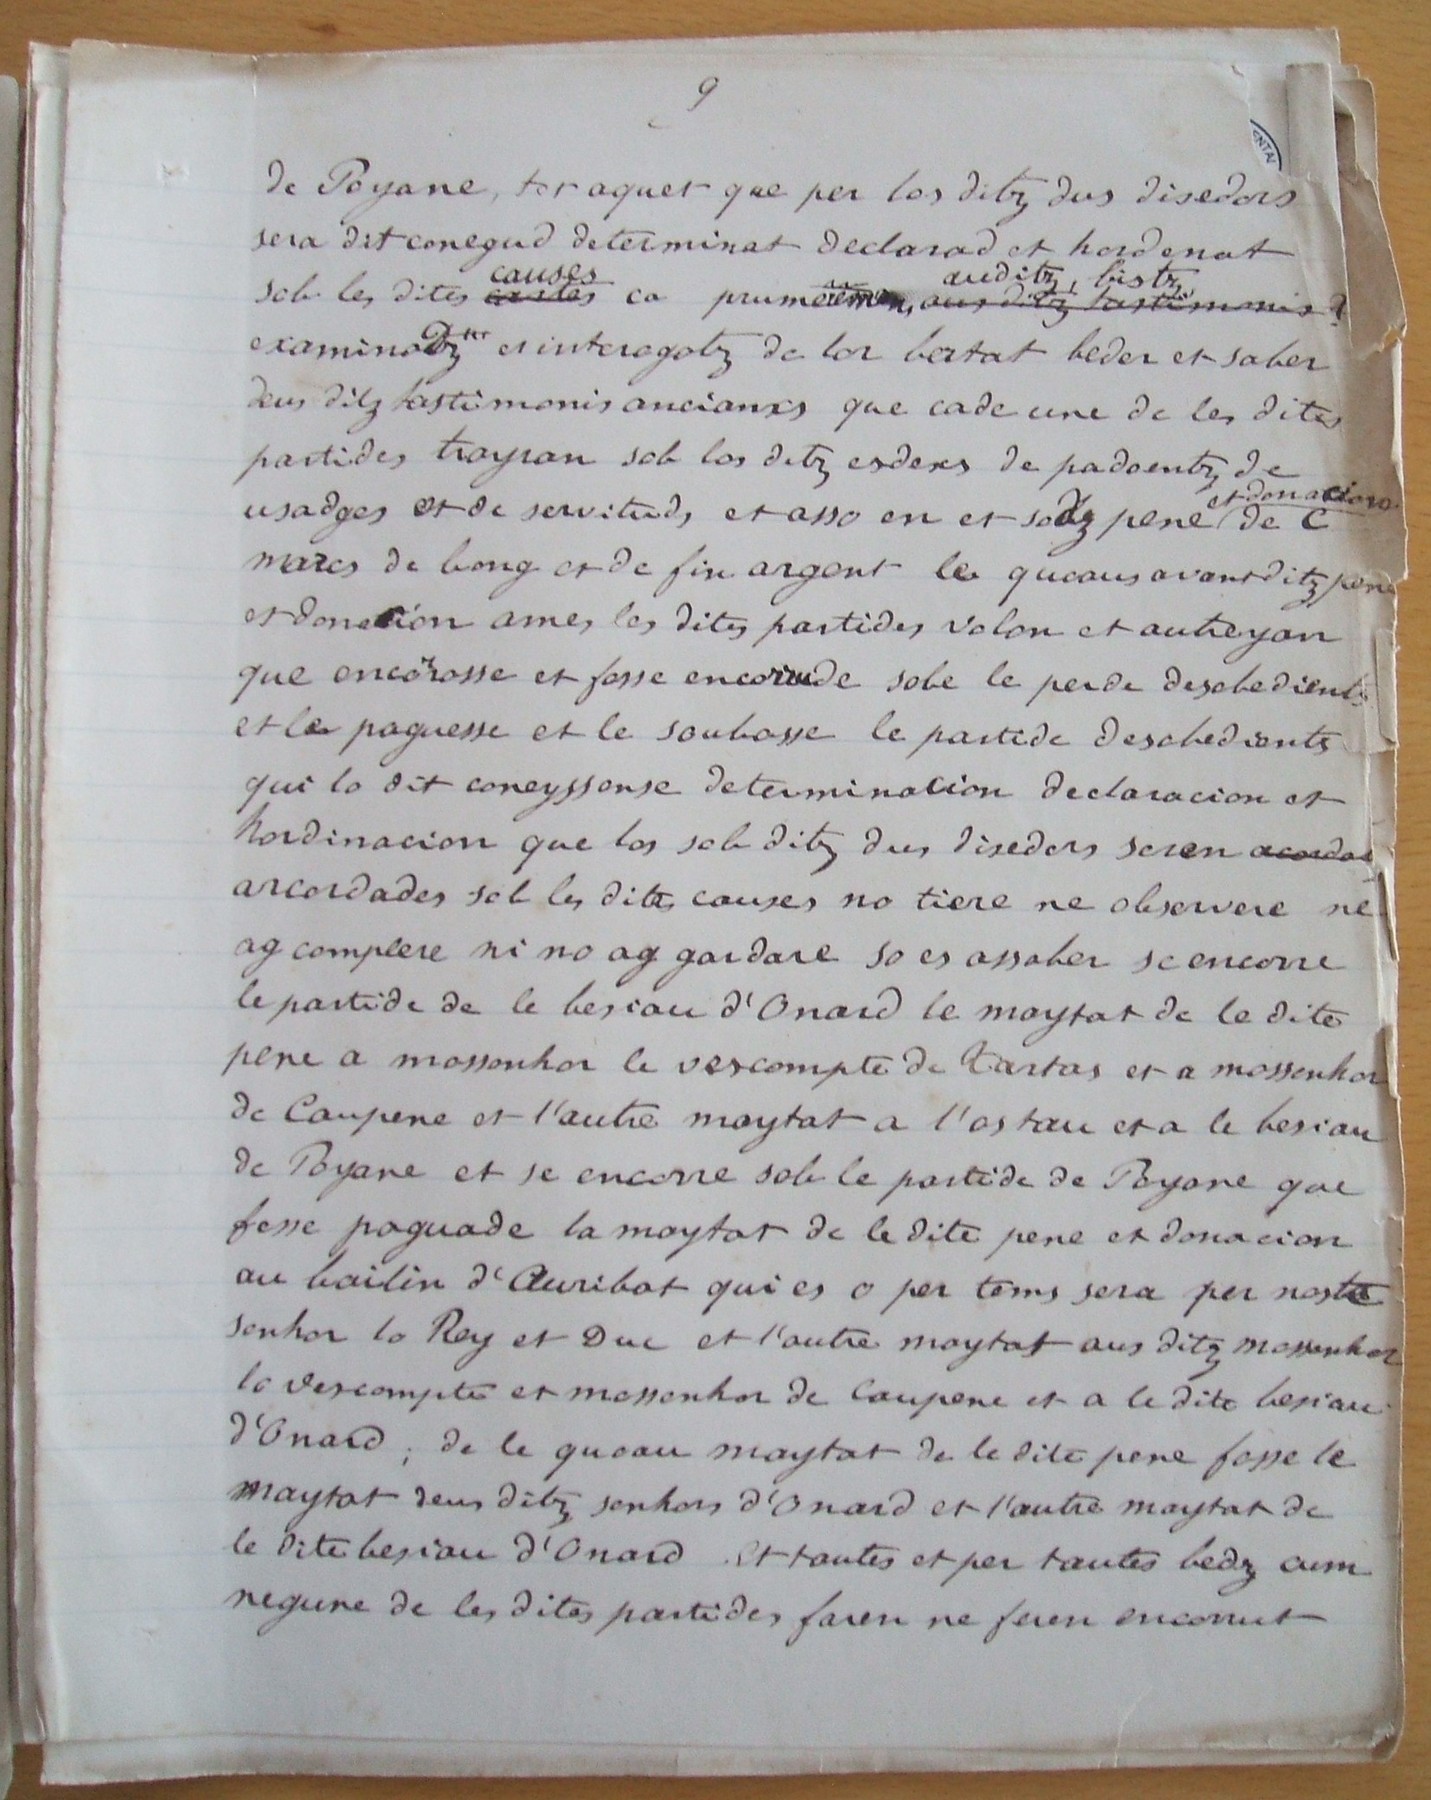 9
de Poyane, tot aquet que per los ditz dus disedors
sera dit conegud determinat declarad et hordenat
causes auditz, bistz
sob les dites castes ca prumeiremens aus ditz tastimonis
examinatz et interogatz de lor bertat beder et saber
deus ditz tastimonis ancianxs que cade une de les dites
partides trayran sob los ditz esdexs de padoentz de
et donacion
usadges et de servituds et asso en et sotz pene de C
marcs de bong et de fin argent le queaus avant ditz pene
et donacion ames les dites partides volon et autreyan
que encorosse et fosse encorude sobe le perde desobedients
et le paguesse et le soubasse le partide desobedients
qui lo dit coneyssense determinacion declaracion et
hordinacion que los sob ditz dus disedors seren acordad
arcordades sob les dites causes no tiere ne observere ne
ag complere ni no ag gardare so es assaber se encorre
le partide de le besiau d'Onard le maytat de le dite
pene a mossenhor le vescompte de Tartas et a mossenhor
de Caupene et l'autre maytat a l'ostau et a le besiau
de Poyane et se encorre sob le partide de Poyane que
fosse paguade la maytat de le dite pene et donacion
au bailin d'Auribat qui es o per tems sera per nostre
senhor lo Rey et Duc et l'autre maytat aus ditz mossenhor
lo vescompte et mossenhor de Caupene et a le dite besiau
d'Onard; de le queau maytat de le dite pene fosse le
maytat deus ditz senhors d'Onard et l'autre maytat de
le dite besiau d'Onard et tantes et per tantes bedz cum
negune de les dites partides faren ne feren encorrut